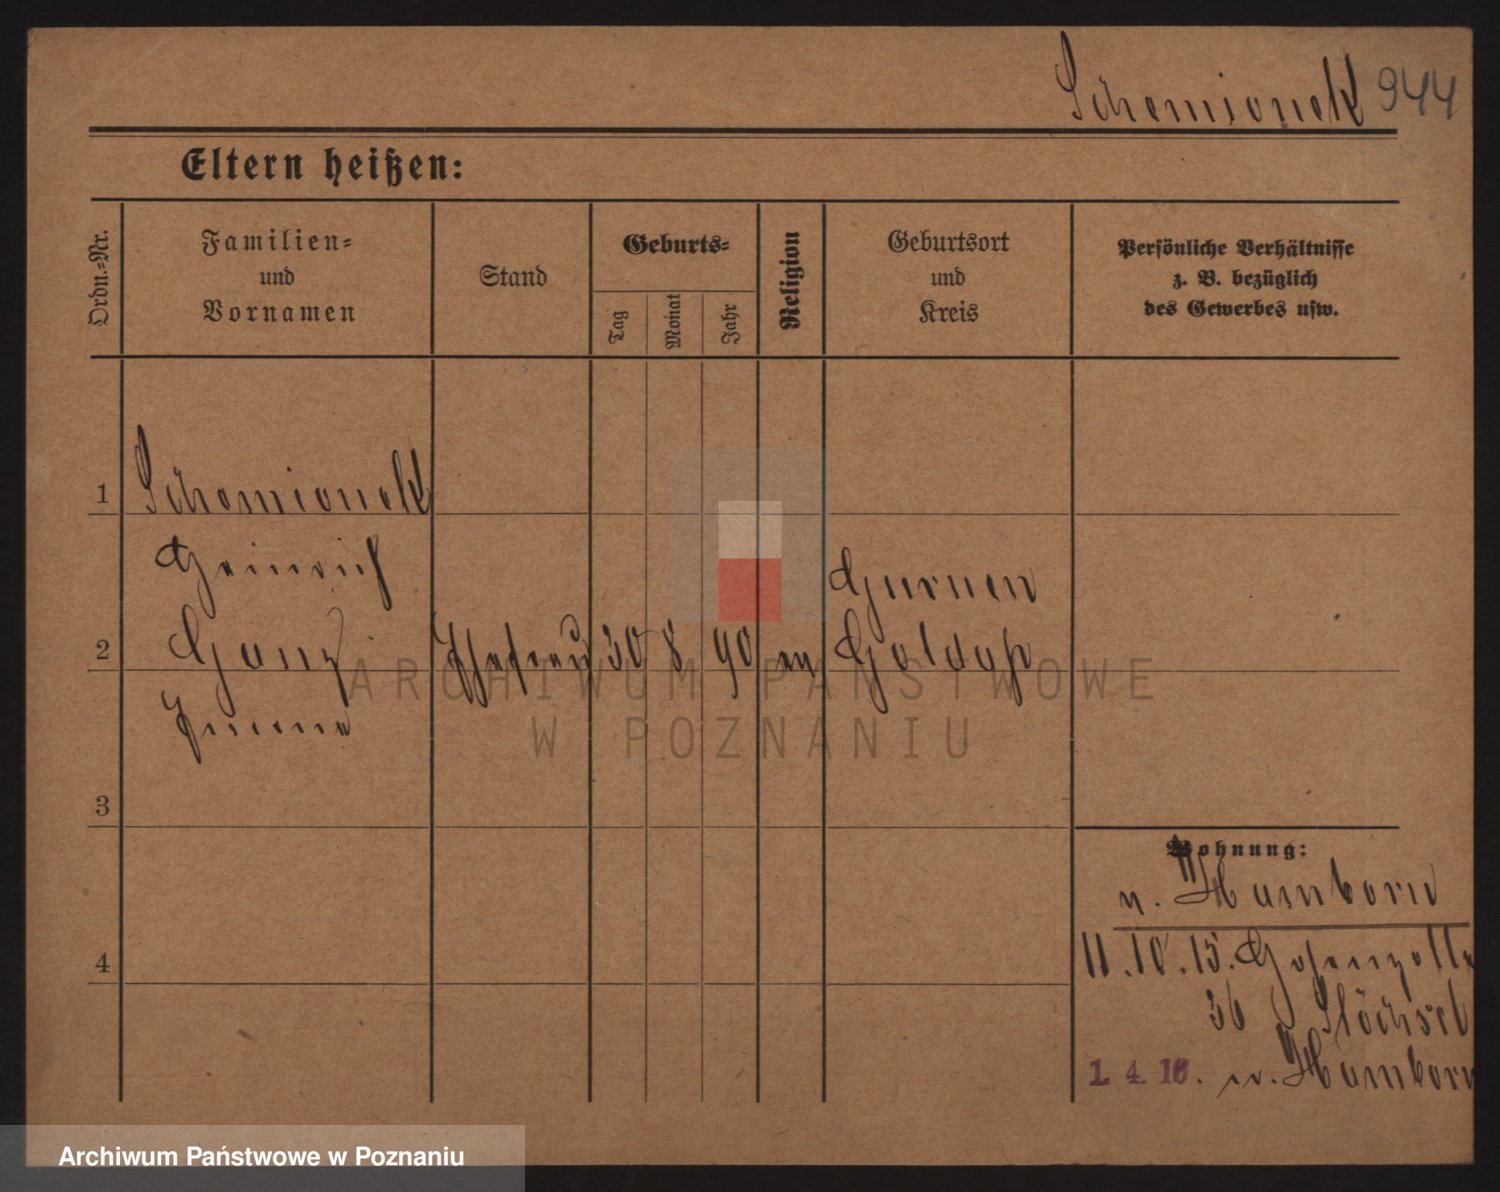 Schemionek 944
Eltern heißen:
Ordn.=Nr.
Familien=
und
Vornamen
Stand
Geburts=
Tag
Monat
Jahr
Religion
Geburtsort
und
Kreis
Persönliche Verhältnisse
z. B. bezüglich
des Gewerbes usw.
1 Schemionek
Heinrich Gurnen
2 Ganz Ehefrau 30 8 90 ev Goldap
3
Wohnung:
n. Hamborn
4
11.10.15. Hohenzolle
36
1. 4. 16. n. Hamborn
ARCHIWUM PAŃSTWOWE
W POZNANIU
Archiwum Państwowe w Poznaniu